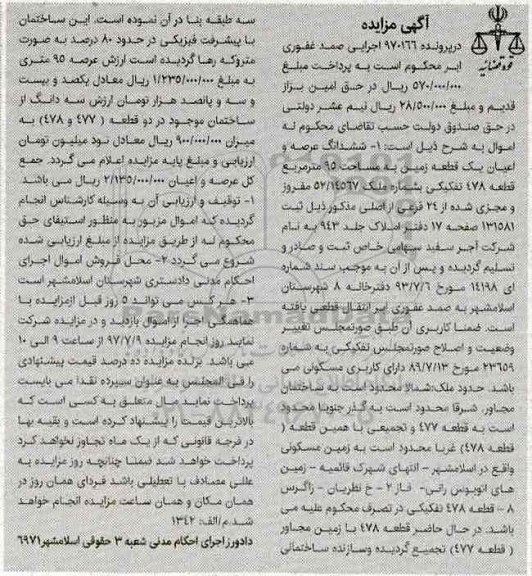 آگهی مزایده
قوه قضائیه
درپرونده ۹۷۰۱۶۶ اجرایی صمد غفوری
ایر محکوم است به پرداخت مبلغ
۵۷۰/۰۰۰/۰۰۰ ریال در حق امین بزاز
قدیم و مبلغ ۲۸/۵۰۰/۰۰۰ ریال نیم عشر دولتی
در حق صندوق دولت حسب تقاضای محکوم له
اموال به شرح ذیل است: ۱- ششدانگ عرصه و
اعیان یک قطعه زمین به مساحت ۹۵ مترمربع
قطعه ۴۷۸ تفکیکی بشماره ملک ۵۲/۱۴۵۶۷ مفروز
و مجزی شده از ۲۴ فرعی از اصلی مذکور ذیل ثبت
۱۳۱۵۸۱ صفحه ۱۷ دفتر املاک جلد ۹۴۳ به نام
شرکت آجر سفید سهامی خاص ثبت و صادر و
تسلیم گردیده و پس از آن به موجب سند شماره
ای ۱۴۱۹۸ مورخ ۹۳/۷/۶ دفترخانه ۸ شهرستان
اسلامشهر به صمد غفوری ایر انتقال قطعی یافته
است. ضمنا کاربری آن طبق صورتمجلس تغییر
وضعیت و اصلاح صورتمجلس تفکیکی به شماره
۲۳۶۵۹ مورخ ۸۹/۷/۱۳ دارای کاربری مسکونی می
باشد. حدود ملک:شمالا محدود است به ساختمان
مجاور. شرقا محدود است به گذر جنوبا محدود
است به قطعه ۴۷۷ و تجمیعی با همین قطعه (
قطعه ۴۷۸) غربا محدود است به زمین مسکونی
واقع در اسلامشهر - انتهای شهرک قائمیه - زمین
های اتوبوس رانی- فاز ۲ - خ نظریان - زاگرس
۸ - قطعه ۴۷۸ تفکیکی در تصرف محکوم علیه می
باشد. در حال حاضر قطعه ۴۷۸ با زمین مجاور
( قطعه ۴۷۷) تجمیع گردیده وسازنده ساختمانی
سه طبقه بنا در آن نموده است. این ساختمان
با پیشرفت فیزیکی در حدود ۸۰ درصد به صورت
متروکه رها گردیده است ارزش عرصه ۹۵ متری
به مبلغ ۱/۲۳۵/۰۰۰/۰۰۰ ریال معادل یکصد و بیست
و سه و پانصد هزار تومان ارزش سه دانگ از
ساختمان موجود در دو قطعه ( ۴۷۷ و ۴۷۸) به
میزان ۹۰۰/۰۰۰/۰۰۰ ریال معادل نود میلیون تومان
ارزیابی و مبلغ پایه مزایده اعلام می گردد. جمع
کل عرصه و اعیان ۲/۱۳۵/۰۰۰/۰۰۰ ریال می باشد.
۱- توقیف و ارزیابی آن به وسیله کارشناس انجام
گردیده که اموال مزبور به منظور استیفای حق
محکوم له از طریق مزایده از مبلغ ارزیابی شده
شروع می گردد ۲- محل فروش اموال اجرای
احکام مدنی دادگستری شهرستان اسلامشهر است
۳- هر کس می تواند ۵ روز قبل ازمزایده با
هماهنگی اجرا از اموال بازدید و در مزایده شرکت
نمایند روز انجام مزایده ۹۷/۷/۹ از ساعت ۹ الی ۱۰
می باشد. برنده مزایده ده درصد قیمت پیشنهادی
را فی المجلس به عنوان سپرده نقدا می بایست
پرداخت نماید مال متعلق به کسی است که
بالاترین قیمت را پیشنهاد کرده است و بقیه بها
در فرجه قانونی که از یک ماه تجاوز نخواهد کرد
پرداخت خواهد شد ضمنا چنانچه روز مزایده به
عللی مصادف با تعطیلی باشد فردای همان روز در
همان مکان و همان ساعت مزایده انجام خواهد
شد.م/الف: ۱۳۴۲
دادورز اجرای احکام مدنی شعبه ۳ حقوقی اسلامشهر۶۹۷۱